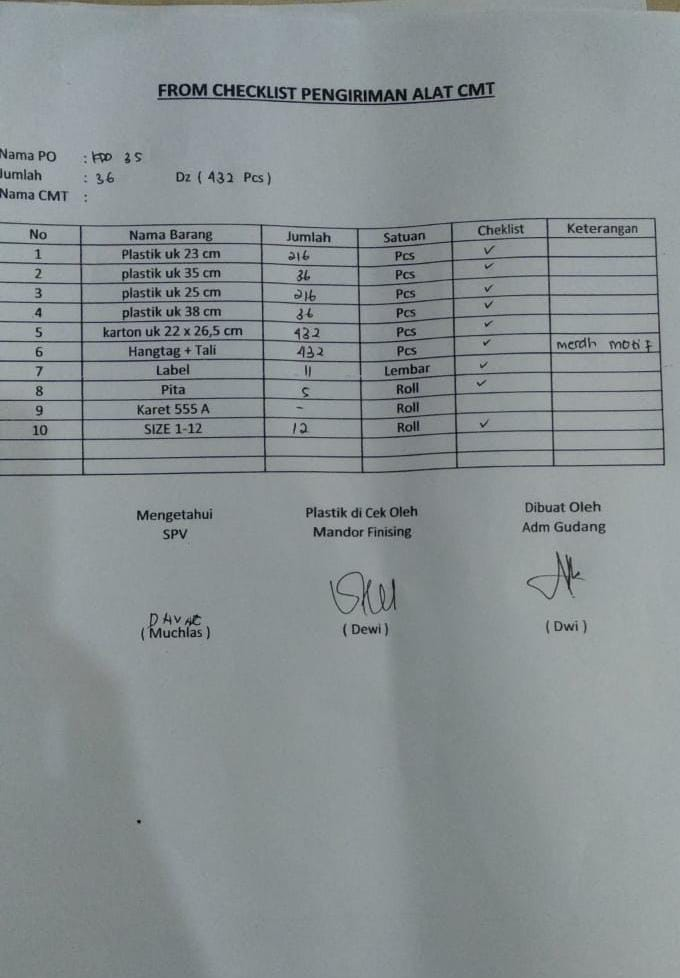 FROM CHECKLIST PENGIRIMAN ALAT CMT
Nama PO : 35
Jumlah : 36 Dz ( 432 Pcs )
Nama CMT :
No Nama Barang Jumlah Satuan Cheklist Keterangan
1 Plastik uk 23 cm 216 Pcs ✓
2 plastik uk 35 cm 36 Pcs ✓
3 plastik uk 25 cm 216 Pcs ✓
4 plastik uk 38 cm 36 Pcs ✓
5 karton uk 22 x 26,5 cm 432 Pcs ✓
6 Hangtag + Tali 432 Pcs ✓ merdh motif
7 Label 11 Lembar ✓
8 Pita 5 Roll ✓
9 Karet 555 A - Roll
10 SIZE 1-12 12 Roll ✓
Mengetahui Plastik di Cek Oleh Dibuat Oleh
SPV Mandor Finising Adm Gudang
( Muchlas ) ( Dewi ) ( Dwi )